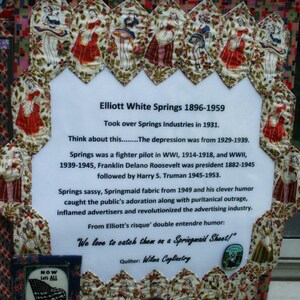 Elliott White Springs 1896-1959
Took over Springs Industries in 1931.
Think about this.........The depression was from 1929-1939.
Springs was a fighter pilot in WWI, 1914-1918, and WWII,
1939-1945, Franklin Delano Roosevelt was president 1882-1945
followed by Harry S. Truman 1945-1953.
Springs sassy, Springmaid fabric from 1949 and his clever humor
caught the public's adoration along with puritanical outrage,
inflamed advertisers and revolutionized the advertising industry.
From Elliott's risque' double entendre humor:
"We love to catch them on a Springmaid Sheet!"
Quilter: Wilma
NOW
Let's ALL